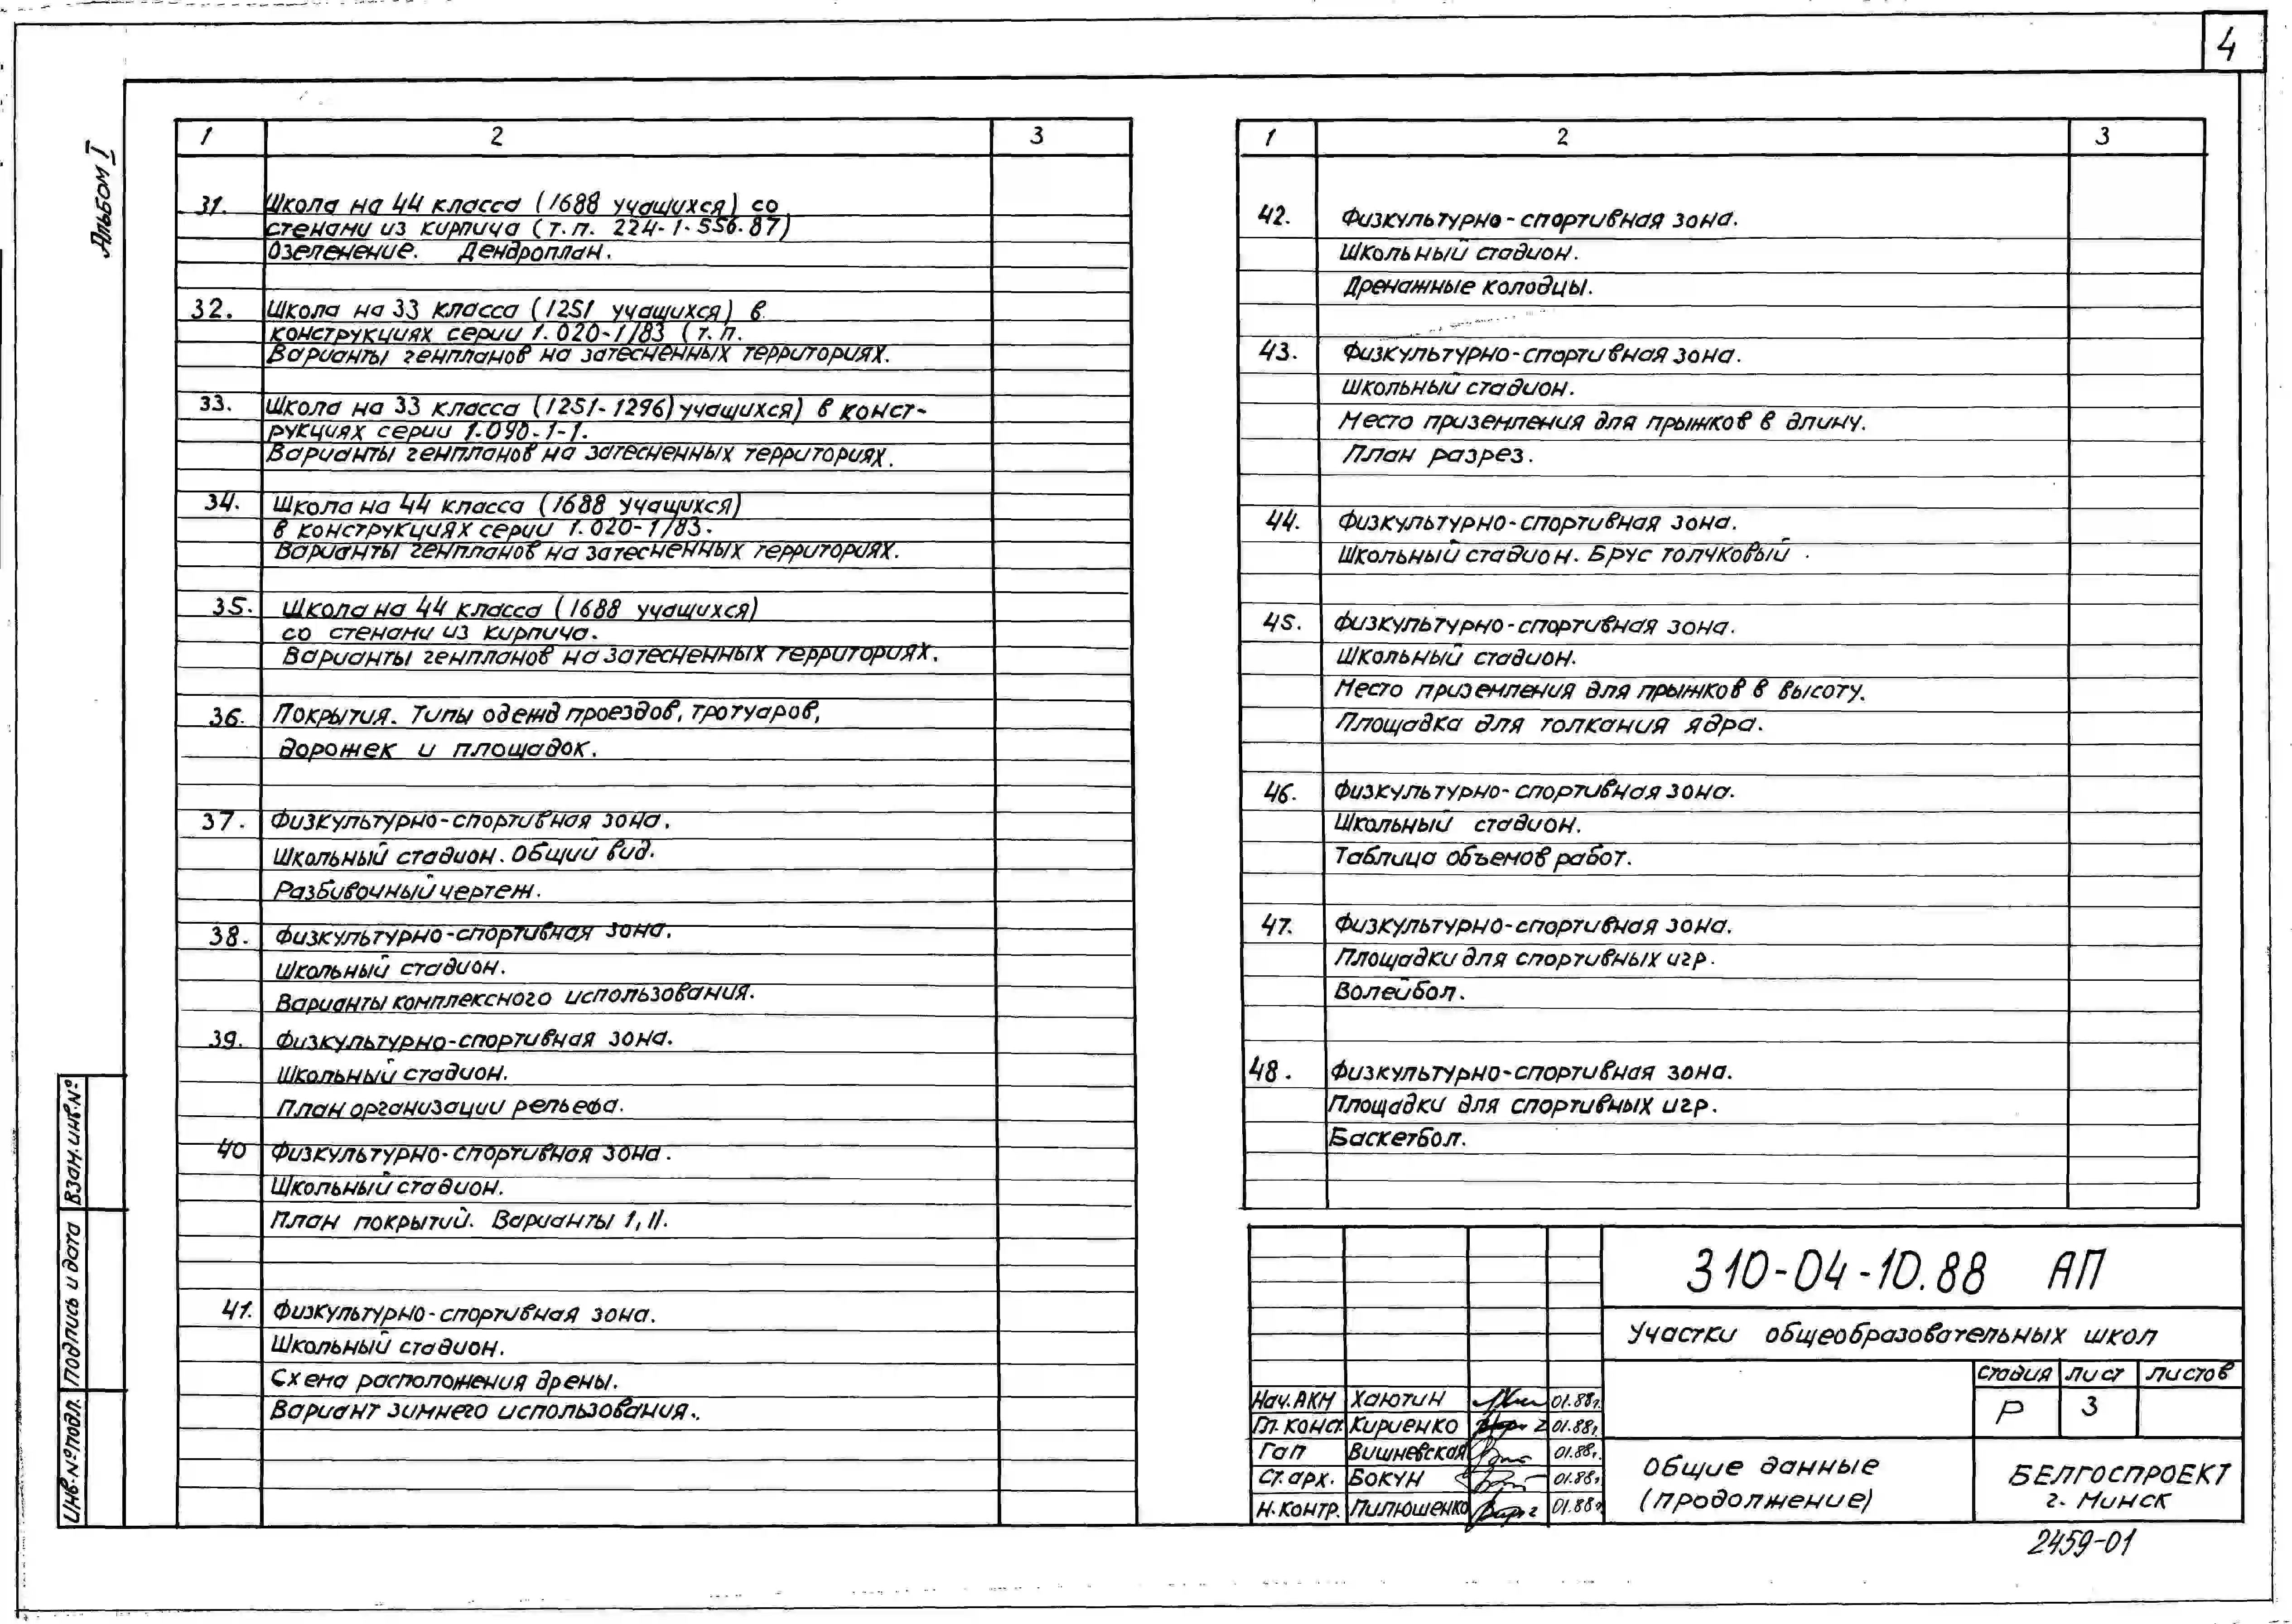 4
Альбом I
1 2 3
31. Школа на 44 класса (1688 учащихся) со
стенами из кирпича (т.п. 224-1-556.87)
Озеленение. Дендроплан.
32. Школа на 33 класса (1251 учащихся) в
конструкциях серии 1.020-1/83 (т.п.
Варианты генпланов на затесненных территориях.
33. Школа на 33 класса (1251-1296) учащихся) в конст-
рукциях серии 1.090-1-1.
Варианты генпланов на затесненных территориях.
34. Школа на 44 класса (1688 учащихся)
в конструкциях серии 1.020-1/83.
Варианты генпланов на затесненных территориях.
35. Школа на 44 класса (1688 учащихся)
со стенами из кирпича.
Варианты генпланов на затесненных территориях.
36. Покрытия. Типы одежд проездов, тротуаров,
дорожек и площадок.
37. Физкультурно-спортивная зона.
Школьный стадион. Общий вид.
Разбивочный чертеж.
38. Физкультурно-спортивная зона.
Школьный стадион.
Варианты комплексного использования.
39. Физкультурно-спортивная зона.
Школьный стадион.
План организации рельефа.
40 Физкультурно-спортивная зона.
Школьный стадион.
План покрытий. Варианты I, II.
41. Физкультурно-спортивная зона.
Школьный стадион.
Схема расположения дрены.
Вариант зимнего использования.
1 2 3
42. Физкультурно-спортивная зона.
Школьный стадион.
Дренажные колодцы.
43. Физкультурно-спортивная зона.
Школьный стадион.
Место приземления для прыжков в длину.
План разрез.
44. Физкультурно-спортивная зона.
Школьный стадион. Брус толчковый.
45. Физкультурно-спортивная зона.
Школьный стадион.
Место приземления для прыжков в высоту.
Площадка для толкания ядра.
46. Физкультурно-спортивная зона.
Школьный стадион.
Таблица объемов работ.
47. Физкультурно-спортивная зона.
Площадки для спортивных игр.
Волейбол.
48. Физкультурно-спортивная зона.
Площадки для спортивных игр.
Баскетбол.
310-04-10.88 АП
Участки общеобразовательных школ
Стадия Лист Листов
Р 3
Нач. АКМ Хаютин 01.88г.
Гл. конс. Кириенко 01.88г.
Гап Вишневская 01.88г.
Ст. арх. Бокун 01.88г.
Н. контр. Пилюшенко 01.88г.
Общие данные
(продолжение)
БЕЛГОСПРОЕКТ
г. Минск
2459-01
Взам. инв. №
Подпись и дата
Инв. № подл.